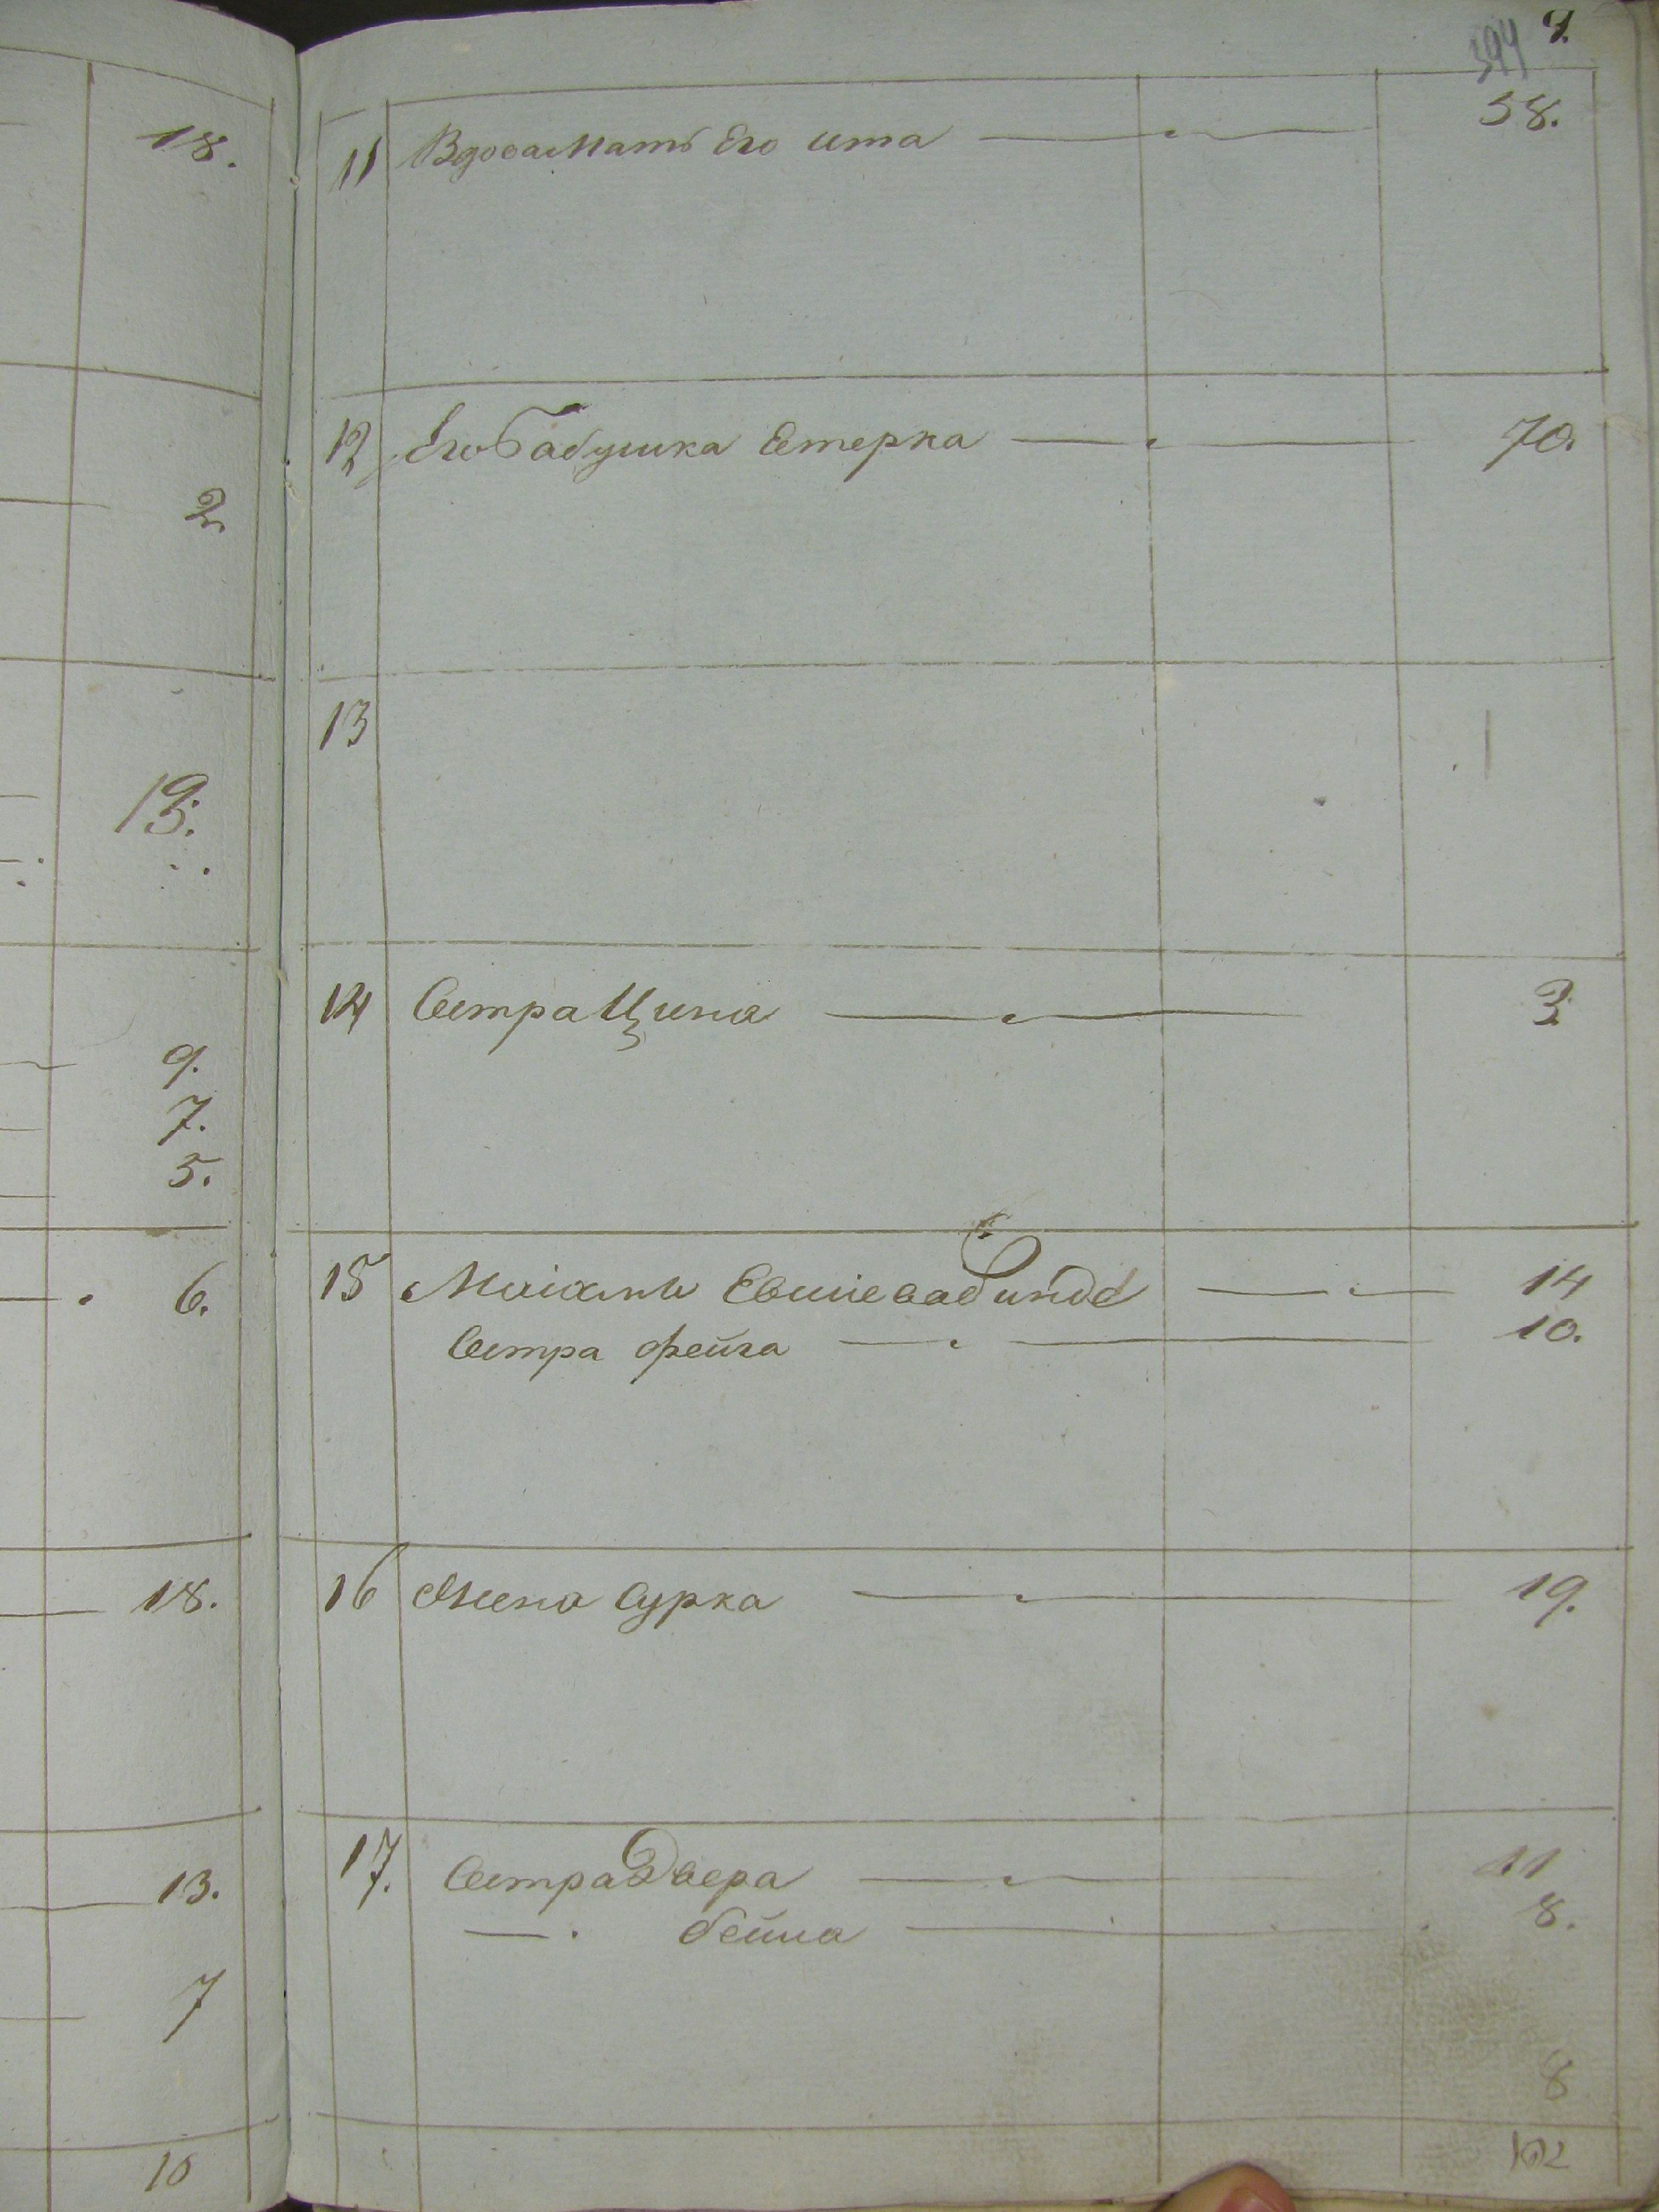 18.
2.
19.
9.
7.
5.
6.
18.
13.
7
10
394 9.
11 Вдова Мать Его ита 58.
12 Его Бабушка Етерка 70.
13
14 Сестра Ципа 3.
15 Евшиева 14
Сестра фейга 10.
16 Жена Сурка 19.
17. Сестра Двера 11
— бейла 8.
8
102